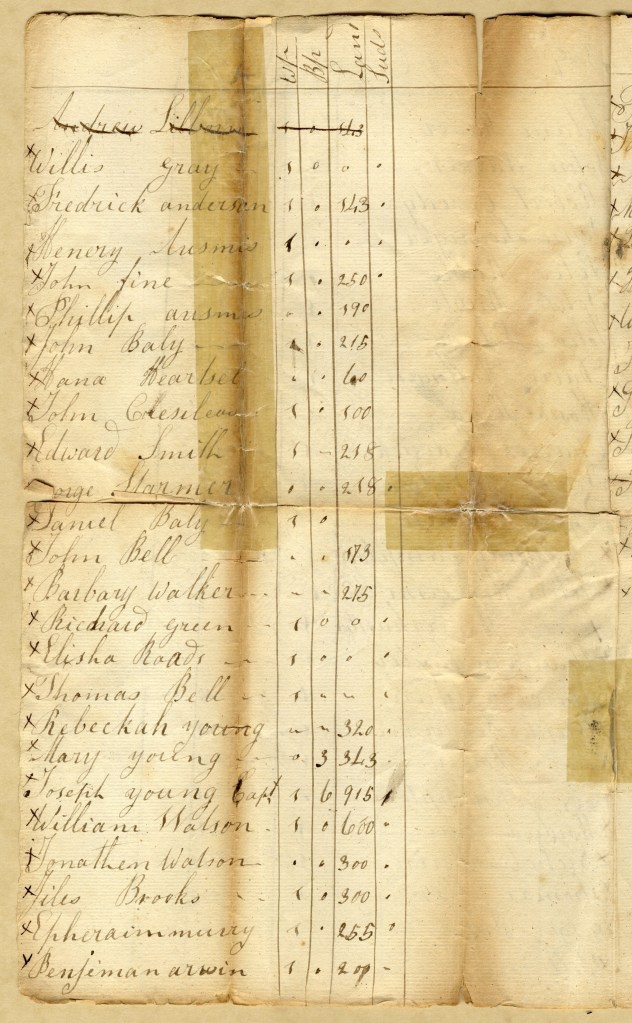 Wp Bp Lans Suds
Andrew Lilburn 1 0 43
x Willis Gray 1 0 0 0
x Fredrick anderson 1 0 143 0
x Henery Ausmis 1 0 0 0
x John fine 1 0 250 0
x Phillip ausmis 0 0 190
x John Baly 1 0 215
x Hana Heartsel 0 0 60
x John 1 0 100
x Edward Smith 1 - 218
Starmer 0 0 218 0
x Daniel Baly 1 0
x John Bell - - 173
x Barbary Walker - - - 275
x Richard green 1 0 0 0
x Elisha Roads 1 0 0 0
x Thomas Bell 1 - - -
x Rebeckah young - - 320 0
x Mary young 0 3 343
x Joseph young Capt 1 6 915 1
x William Watson 1 0 600 0
x Jonathen Watson 0 0 300 0
x Jiles Brooks 1 0 300 0
x Epheraim murry 1 0 255 0
x Benjiman arwin 1 0 200 -